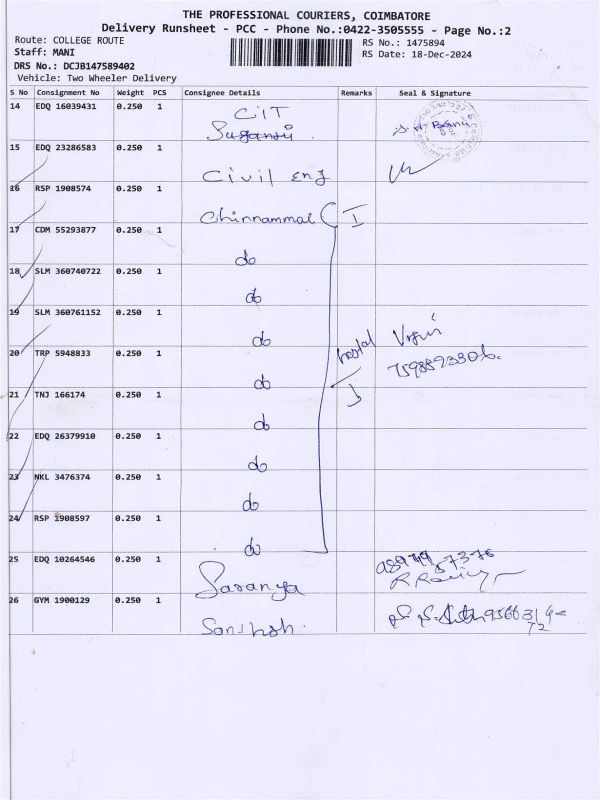 THE PROFESSIONAL COURIERS, COIMBATORE
Delivery Runsheet - PCC - Phone No.:0422-3505555 - Page No.:2
Route: COLLEGE ROUTE
RS No.: 1475894
Staff: MANI
RS Date: 18-Dec-2024
DRS No.: DCJB147589402
Vehicle: Two Wheeler Delivery
S No Consignment No Weight PCS Consignee Details Remarks Seal & Signature
14 EDQ 16039431 0.250 1 CIT
15 EDQ 23286583 0.250 1
Civil eng
16 RSP 1908574 0.250 1
Chinnammal I
17 CDM 55293877 0.250 1
do
18 SLM 360740722 0.250 1
do
19 SLM 360761152 0.250 1
do hostel
20 TRP 5948833 0.250 1
do
21 TNJ 166174 0.250 1
do
22 EDQ 26379910 0.250 1
do
23 NKL 3476374 0.250 1
do
24 RSP 1908597 0.250 1
do
25 EDQ 10264546 0.250 1
Saranya
26 GYM 1900129 0.250 1
Santhosh